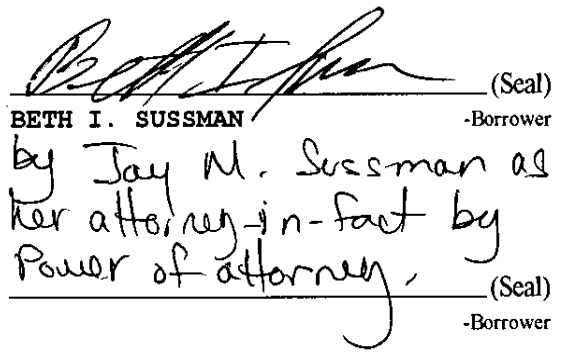 Beth I. Sussman (Seal)
BETH I. SUSSMAN -Borrower
by Jay M. Sussman as
her attorney-in-fact by
Power of attorney.
(Seal)
-Borrower